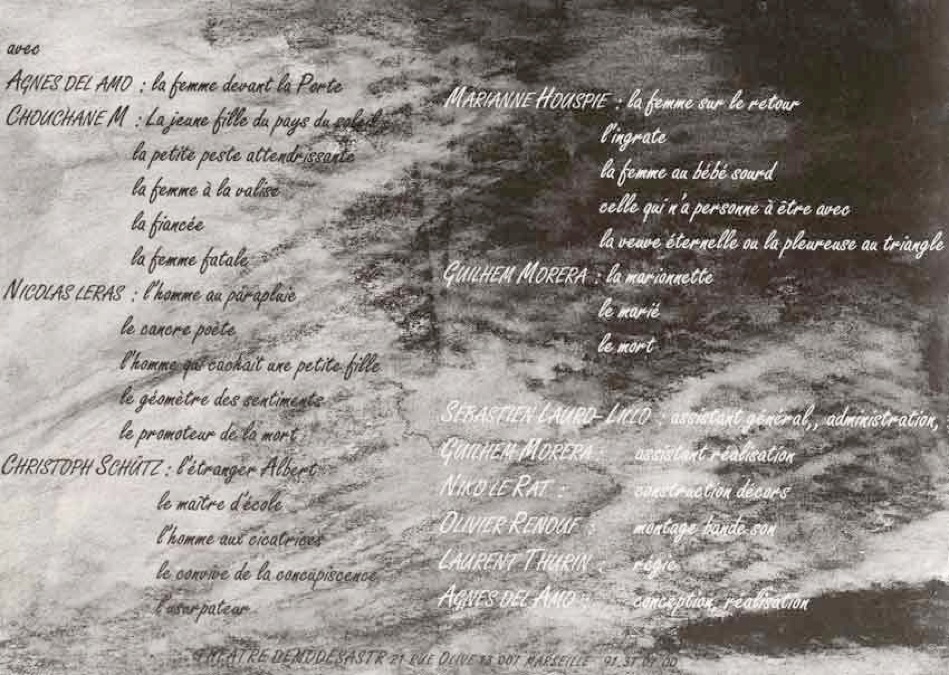 avec
AGNES DEL AMO : la femme devant la Porte
CHOUCHANE M : La jeune fille du pays du soleil
la petite peste attendrissante
la femme à la valise
la fiancée
la femme fatale
NICOLAS LERAS : l'homme au parapluie
le cancre poète
l'homme qui cachait une petite fille
le géomètre des sentiments
le promoteur de la mort
CHRISTOPH SCHÜTZ : l'étranger Albert
le maître d'école
l'homme aux cicatrices
le convive de la concupiscence
l'usurpateur
MARIANNE HOUSPIE : la femme sur le retour
l'ingrate
la femme au bébé sourd
celle qui n'a personne à être avec
la veuve éternelle ou la pleureuse au triangle
GUILHEM MORERA : la marionnette
le marié
le mort
SEBASTIEN LAURO-LILLO : assistant général,, administration,
GUILHEM MORERA : assistant réalisation
NIKO LE RAT : construction décors
OLIVIER RENOUF : montage bande son
LAURENT THURIN : régie
AGNES DEL AMO : conception, réalisation
THEATRE DEMODESASTR 21 RUE OLIVE 13 007 MARSEILLE 91.31